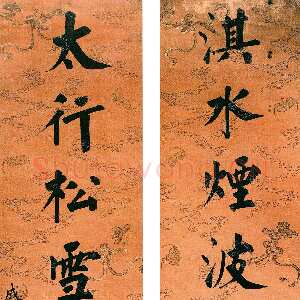 淇水煙波
太行松雪